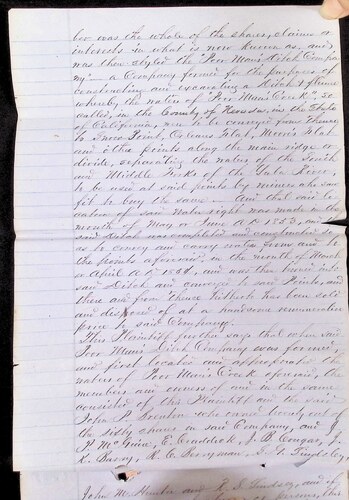 ber was the whole of the shares, claims or
interests in what is now known as, and
was then styled the "Poor Man's Ditch Compa
ny" — a Company formed for the purposes of
constructing and excavating a Ditch & flume
whereby the water of "Poor Man's Creek" so
called, in the County of Nevada, in the State
of California, were to be conveyed from thence
to Snow Point, Orleans Flat, Moores Flat
and other points along the main ridge or
divide, separating the waters of the South
and Middle Forks of the Yuba River,
to be used at said points by miners who saw
fit to buy the same — And that said lo
cation of said Water right was made in the
month of May or June A.D. 1853, and the
said Ditch was completed and constructed so
as to convey and carry water from and to
the points aforesaid, in the month of March
or April A.D. 185, and was then turned into
said Ditch and conveyed to said Points, and
there and from thence hitherto has been sold
and disposed of at a handsome remunerative
price to said Company.
This Plaintiff further says that when said
Poor Man's Ditch Company was formed,
and first located and appropriated the
waters of Poor Man's Creek aforesaid, the
members and owners of and in the same
consisted of this Plaintiff and the said
John P. who owned twenty out of
the sixty shares in said Company, and J.
P. McGuire, E. Craddick, J. B. Dougas, J.
K. R. C. Perryman, G. F. Tingley,
John M. Hunter and E. S. Lindsey, and if